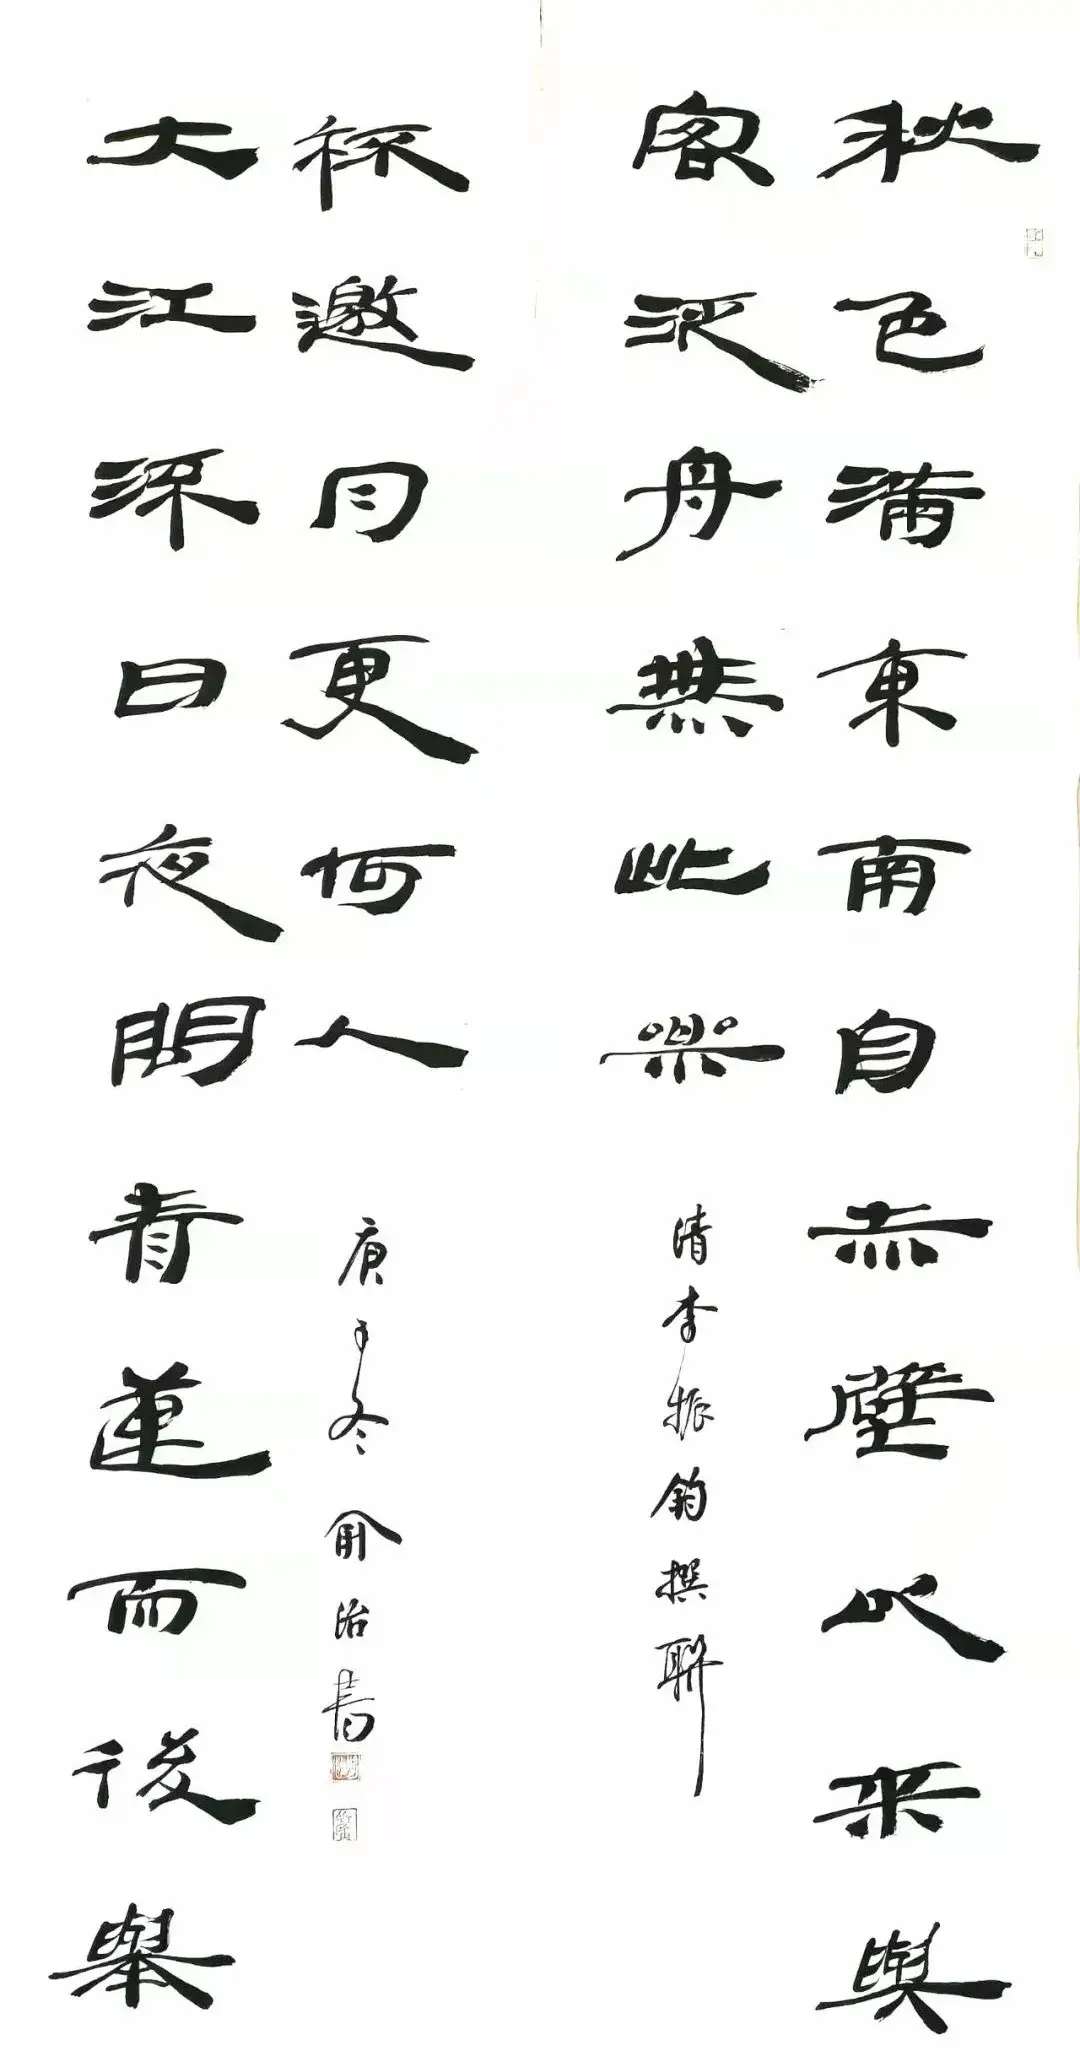 秋色滿東南自赤壁以来與
客泛舟無此樂
清李振鈞撰聯
大江流日夜問青蓮而後舉
杯邀月更何人
庚子冬俞治書